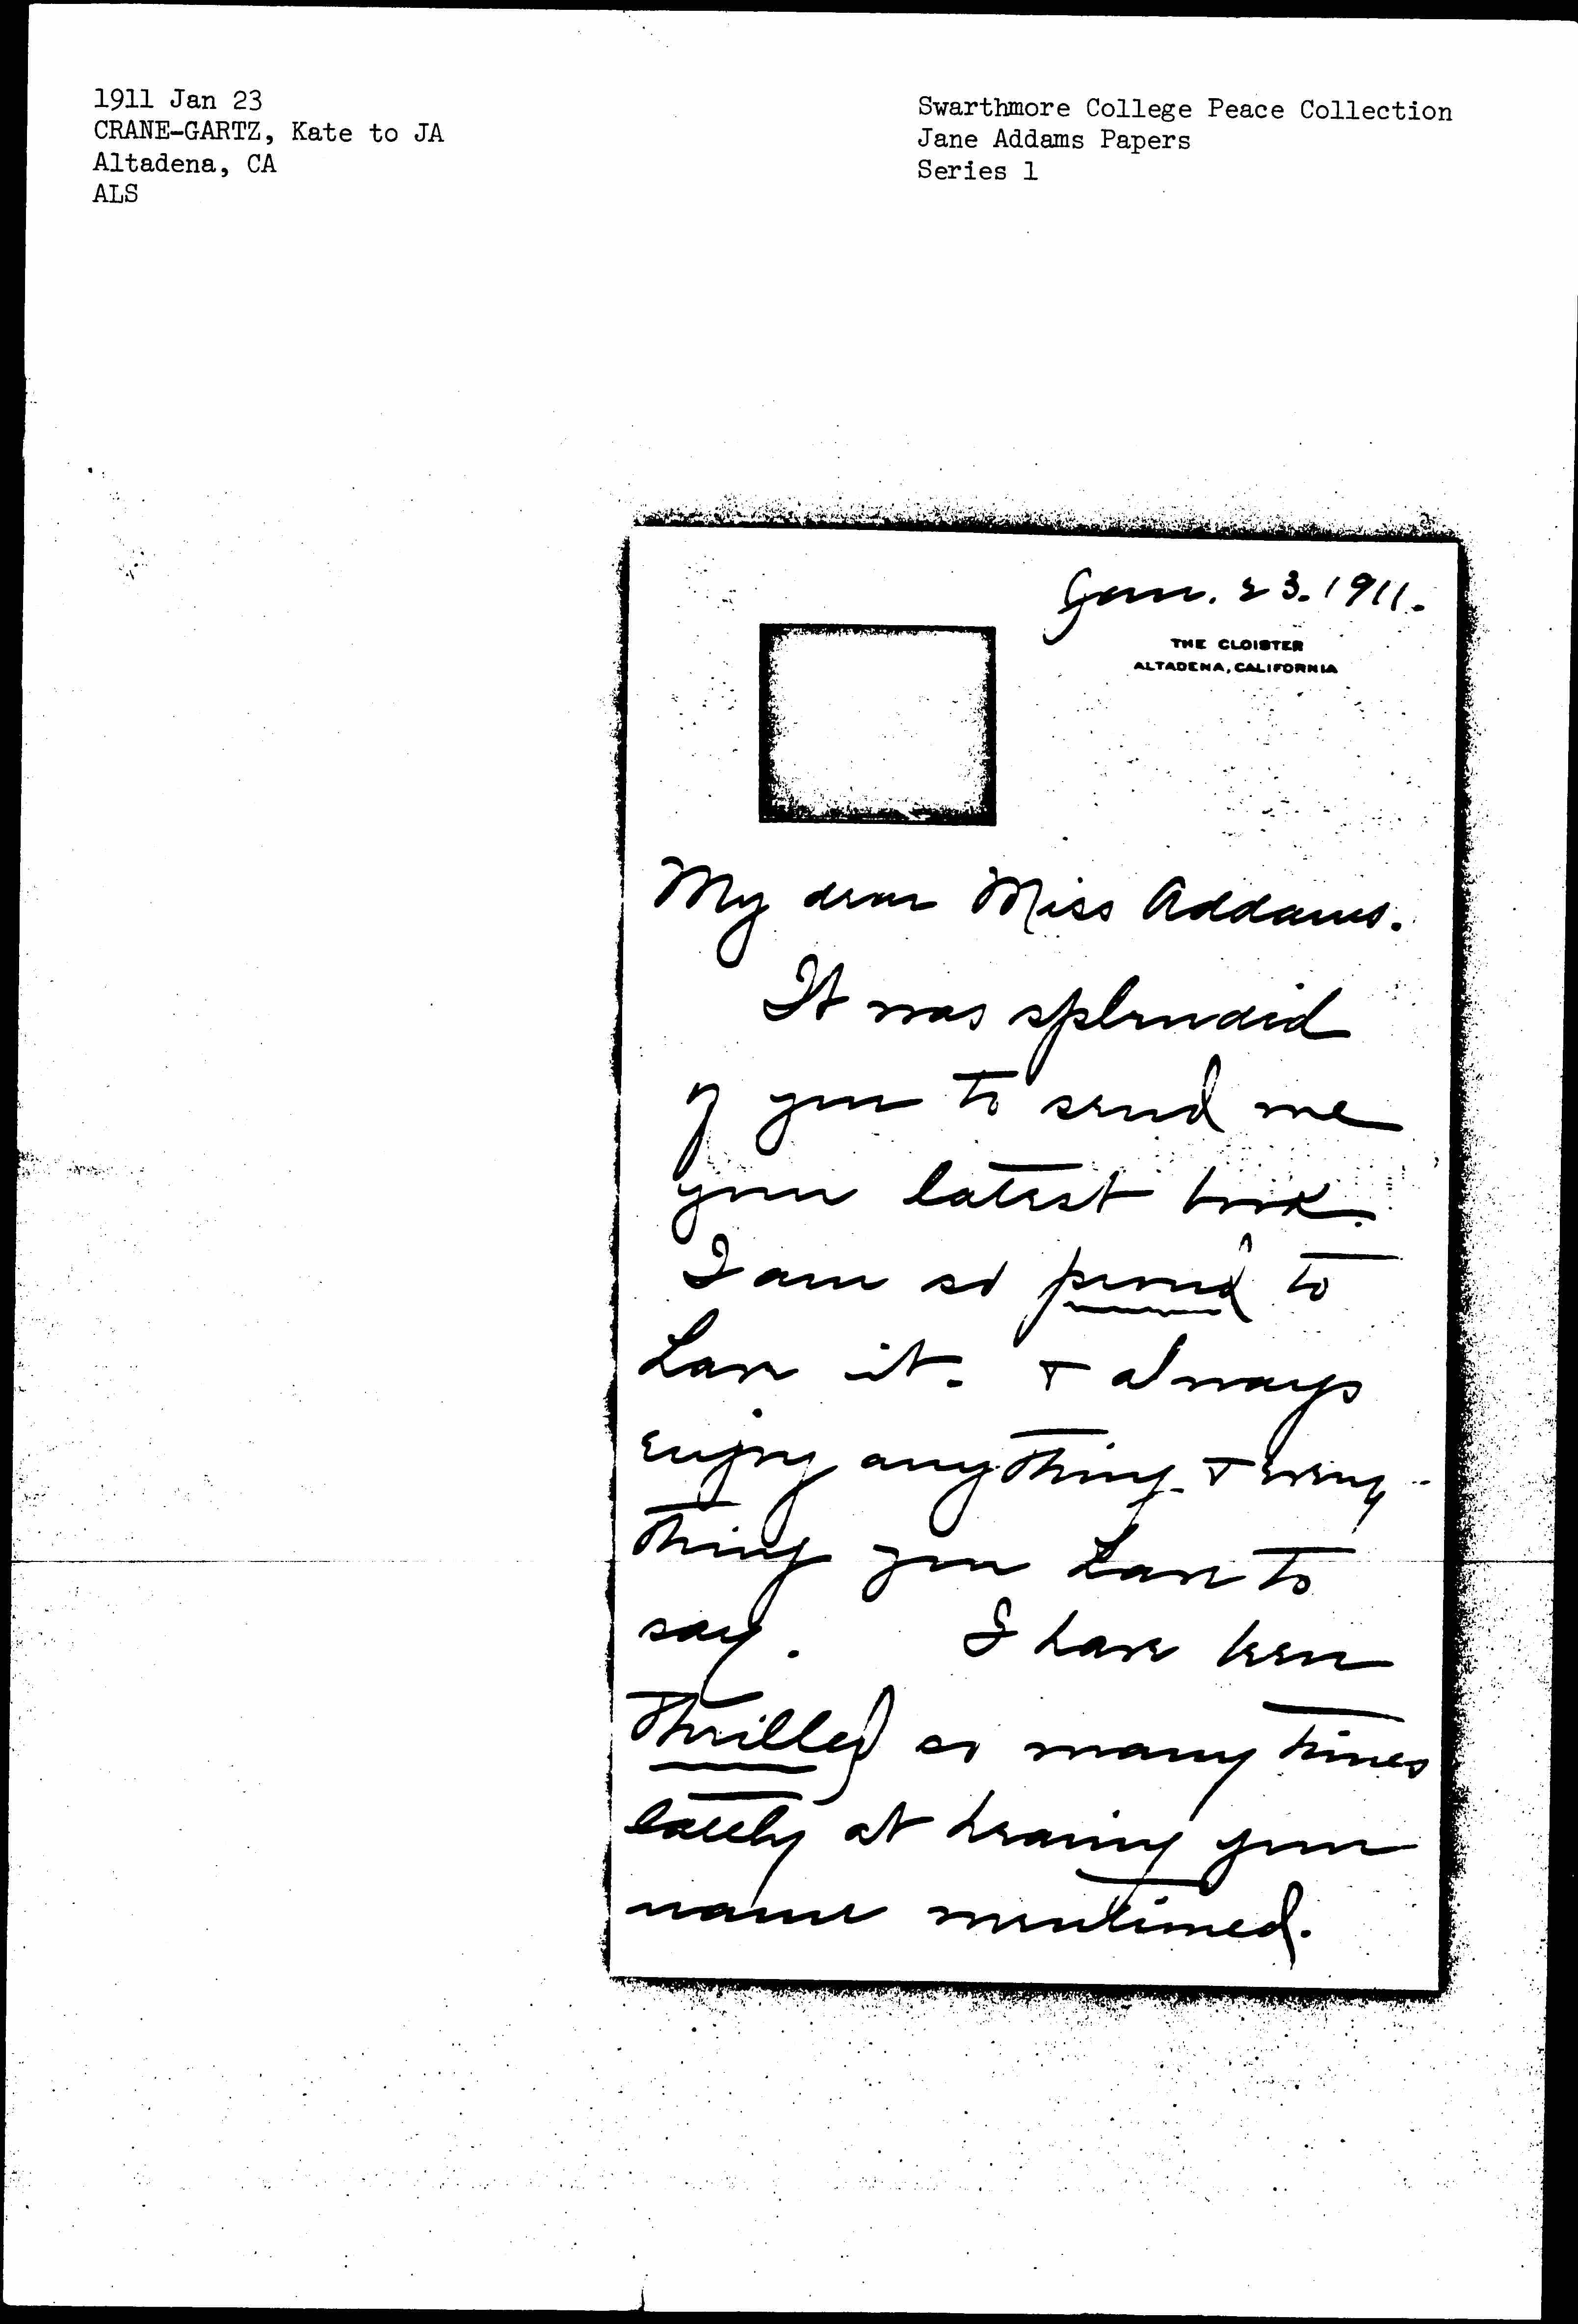 1911 Jan 23
CRANE-GARTZ, Kate to JA
Altadena, CA
ALS
Swarthmore College Peace Collection
Jane Addams Papers
Series 1
Jan. 23. 1911.
THE CLOISTER
ALTADENA, CALIFORNIA
My dear Miss Addams.
It was splendid
of you to send me
your latest book.
I am so proud to
have it. & always
enjoy anything & every-
thing you have to
say. I have been
thrilled so many times
lately at hearing your
name mentioned.